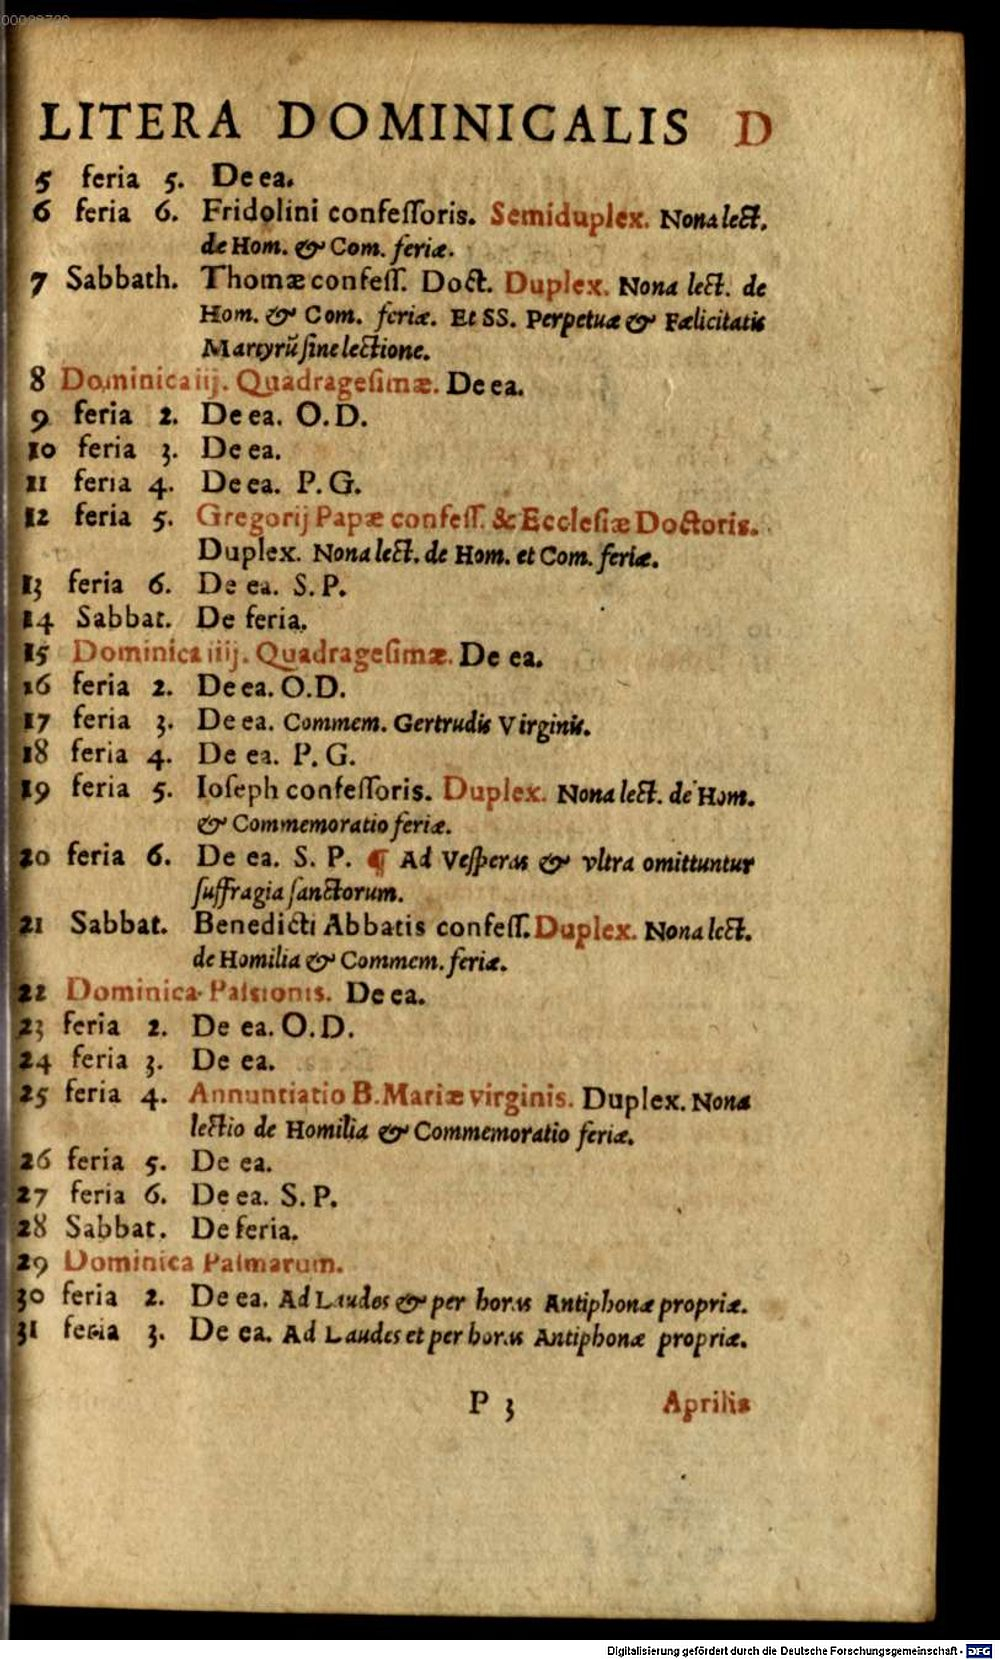 00028729
LITERA DOMINICALIS D
5 feria 5. De ea.
6 feria 6. Fridolini confeſſoris. Semiduplex. Nona lect.
de Hom. & Com. feriæ.
7 Sabbath. Thomæ confeſſ. Doct. Duplex. Nona lect. de
Hom. & Com. feriæ. Et SS. Perpetuæ & Fœlicitatis
Martyrũ ſine lectione.
8 Dominica iij. Quadrageſimæ. De ea.
9 feria 2. De ea. O.D.
10 feria 3. De ea.
11 feria 4. De ea. P.G.
12 feria 5. Gregorij Papæ confeſſ. & Eccleſiæ Doctoris.
Duplex. Nona lect. de Hom. et Com. feriæ.
13 feria 6. De ea. S.P.
14 Sabbat. De feria.
15 Dominica iiij. Quadrageſimæ. De ea.
16 feria 2. De ea. O.D.
17 feria 3. De ea. Commem. Gertrudis Virginis.
18 feria 4. De ea. P.G.
19 feria 5. Ioſeph confeſſoris. Duplex. Nona lect. de Hom.
& Commemoratio feriæ.
20 feria 6. De ea. S. P. ¶ Ad Veſperas & vltra omittuntur
ſuffragia ſanctorum.
21 Sabbat. Benedicti Abbatis confeſſ. Duplex. Nona lect.
de Homilia & Commem. feriæ.
22 Dominica Paſsionis. De ea.
23 feria 2. De ea. O.D.
24 feria 3. De ea.
25 feria 4. Annuntiatio B. Mariæ virginis. Duplex. Nona
lectio de Homilia & Commemoratio feriæ.
26 feria 5. De ea.
27 feria 6. De ea. S.P.
28 Sabbat. De feria.
29 Dominica Palmarum.
30 feria 2. De ea. Ad Laudes & per horas Antiphonæ propriæ.
31 feria 3. De ea. Ad Laudes et per horas Antiphonæ propriæ.
P 3 Aprilis
Digitalisierung gefördert durch die Deutsche Forschungsgemeinschaft - DFG